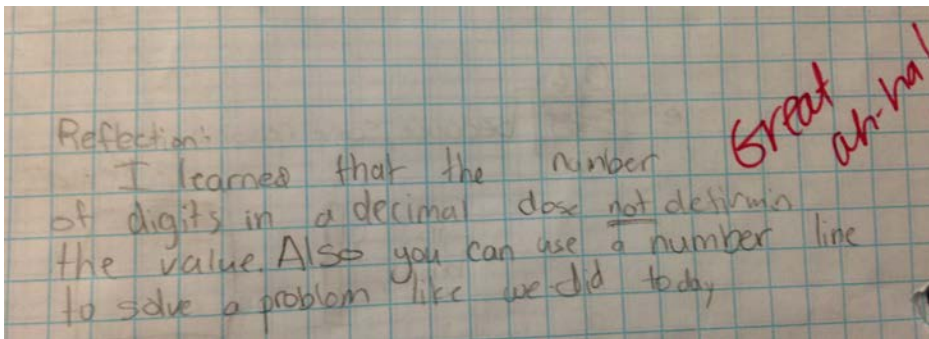 Reflection:
I learned that the number
of digits in a decimal dose not detirmin
the value. Also you can use a number line
to solve a problom like we did today
Great
ah-ha!